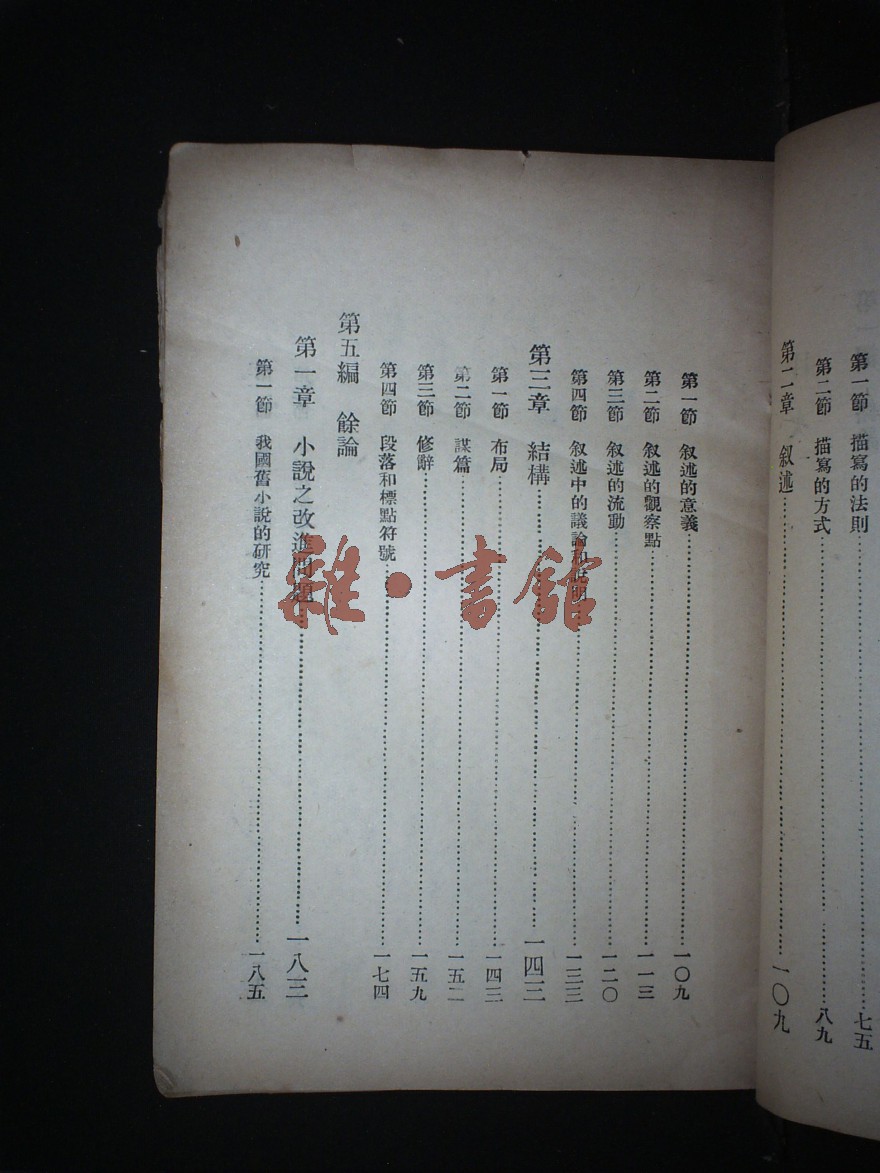 第一節 描寫的法則……七五
第二節 描寫的方式……八九
第二章 叙述……一〇九
第一節 叙述的意義……一〇九
第二節 叙述的觀察點……一一三
第三節 叙述的流動……一二〇
第四節 叙述中的議論和說明……一三三
第三章 結構……一四三
第一節 布局……一四三
第二節 謀篇……一五二
第三節 修辭……一五九
第四節 段落和標點符號……一七四
第五編 餘論
第一章 小說之改進問題……一八三
第一節 我國舊小說的研究……一八五
雜·書館